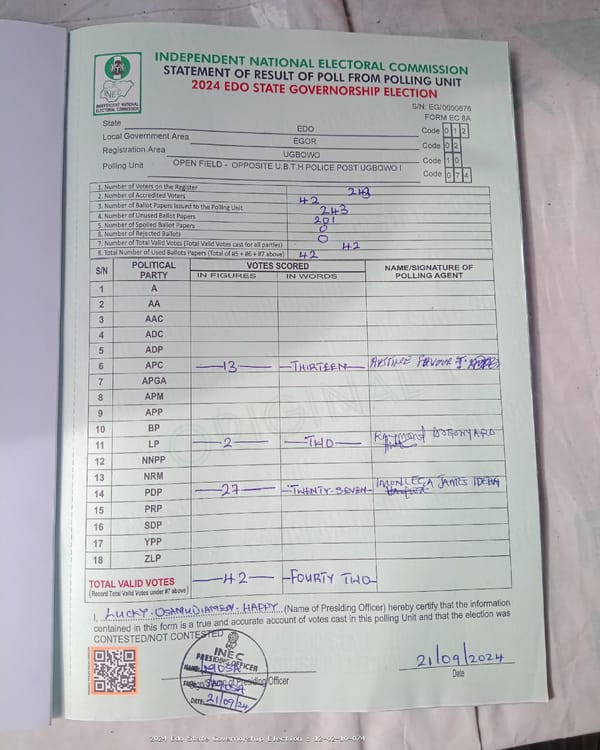 INDEPENDENT NATIONAL ELECTORAL COMMISSION
STATEMENT OF RESULT OF POLL FROM POLLING UNIT
2024 EDO STATE GOVERNORSHIP ELECTION
INEC
INDEPENDENT NATIONAL
ELECTORAL COMMISSION
S/N: EG/0000676
FORM EC 8A
State EDO Code 0 1 2
Local Government Area EGOR Code 0 2
Registration Area UGBOWO Code 1 0
Polling Unit OPEN FIELD - OPPOSITE U.B.T.H POLICE POST UGBOWO I Code 0 7 4
1. Number of Voters on the Register 243
2. Number of Accredited Voters 42
3. Number of Ballot Papers Issued to the Polling Unit 243
4. Number of Unused Ballot Papers 201
5. Number of Spoiled Ballot Papers 0
6. Number of Rejected Ballots 0
7. Number of Total Valid Votes (Total Valid Votes cast for all parties) 42
8. Total Number of Used Ballots Papers (Total of #5 + #6 + #7 above) 42
S/N POLITICAL PARTY VOTES SCORED NAME/SIGNATURE OF POLLING AGENT
IN FIGURES IN WORDS
1 A
2 AA
3 AAC
4 ADC
5 ADP
6 APC 13 THIRTEEN FAVOUR
7 APGA
8 APM
9 APP
10 BP
11 LP 2 TWO
12 NNPP
13 NRM
14 PDP 27 TWENTY-SEVEN JAMES
15 PRP
16 SDP
17 YPP
18 ZLP
ORIGINAL
TOTAL VALID VOTES 42 FOURTY TWO
(Record Total Valid Votes under #7 above)
I, LUCKY OSAMUDIAMEN HAPPY (Name of Presiding Officer) hereby certify that the information
contained in this form is a true and accurate account of votes cast in this polling Unit and that the election was
CONTESTED/NOT CONTESTED
INEC
PRESIDING OFFICER
NAME:
Sign/Stamp of Presiding Officer
DATE: 21/09/24
21/09/2024
Date
2024 Edo State Governorship Election - 12-02-10-074